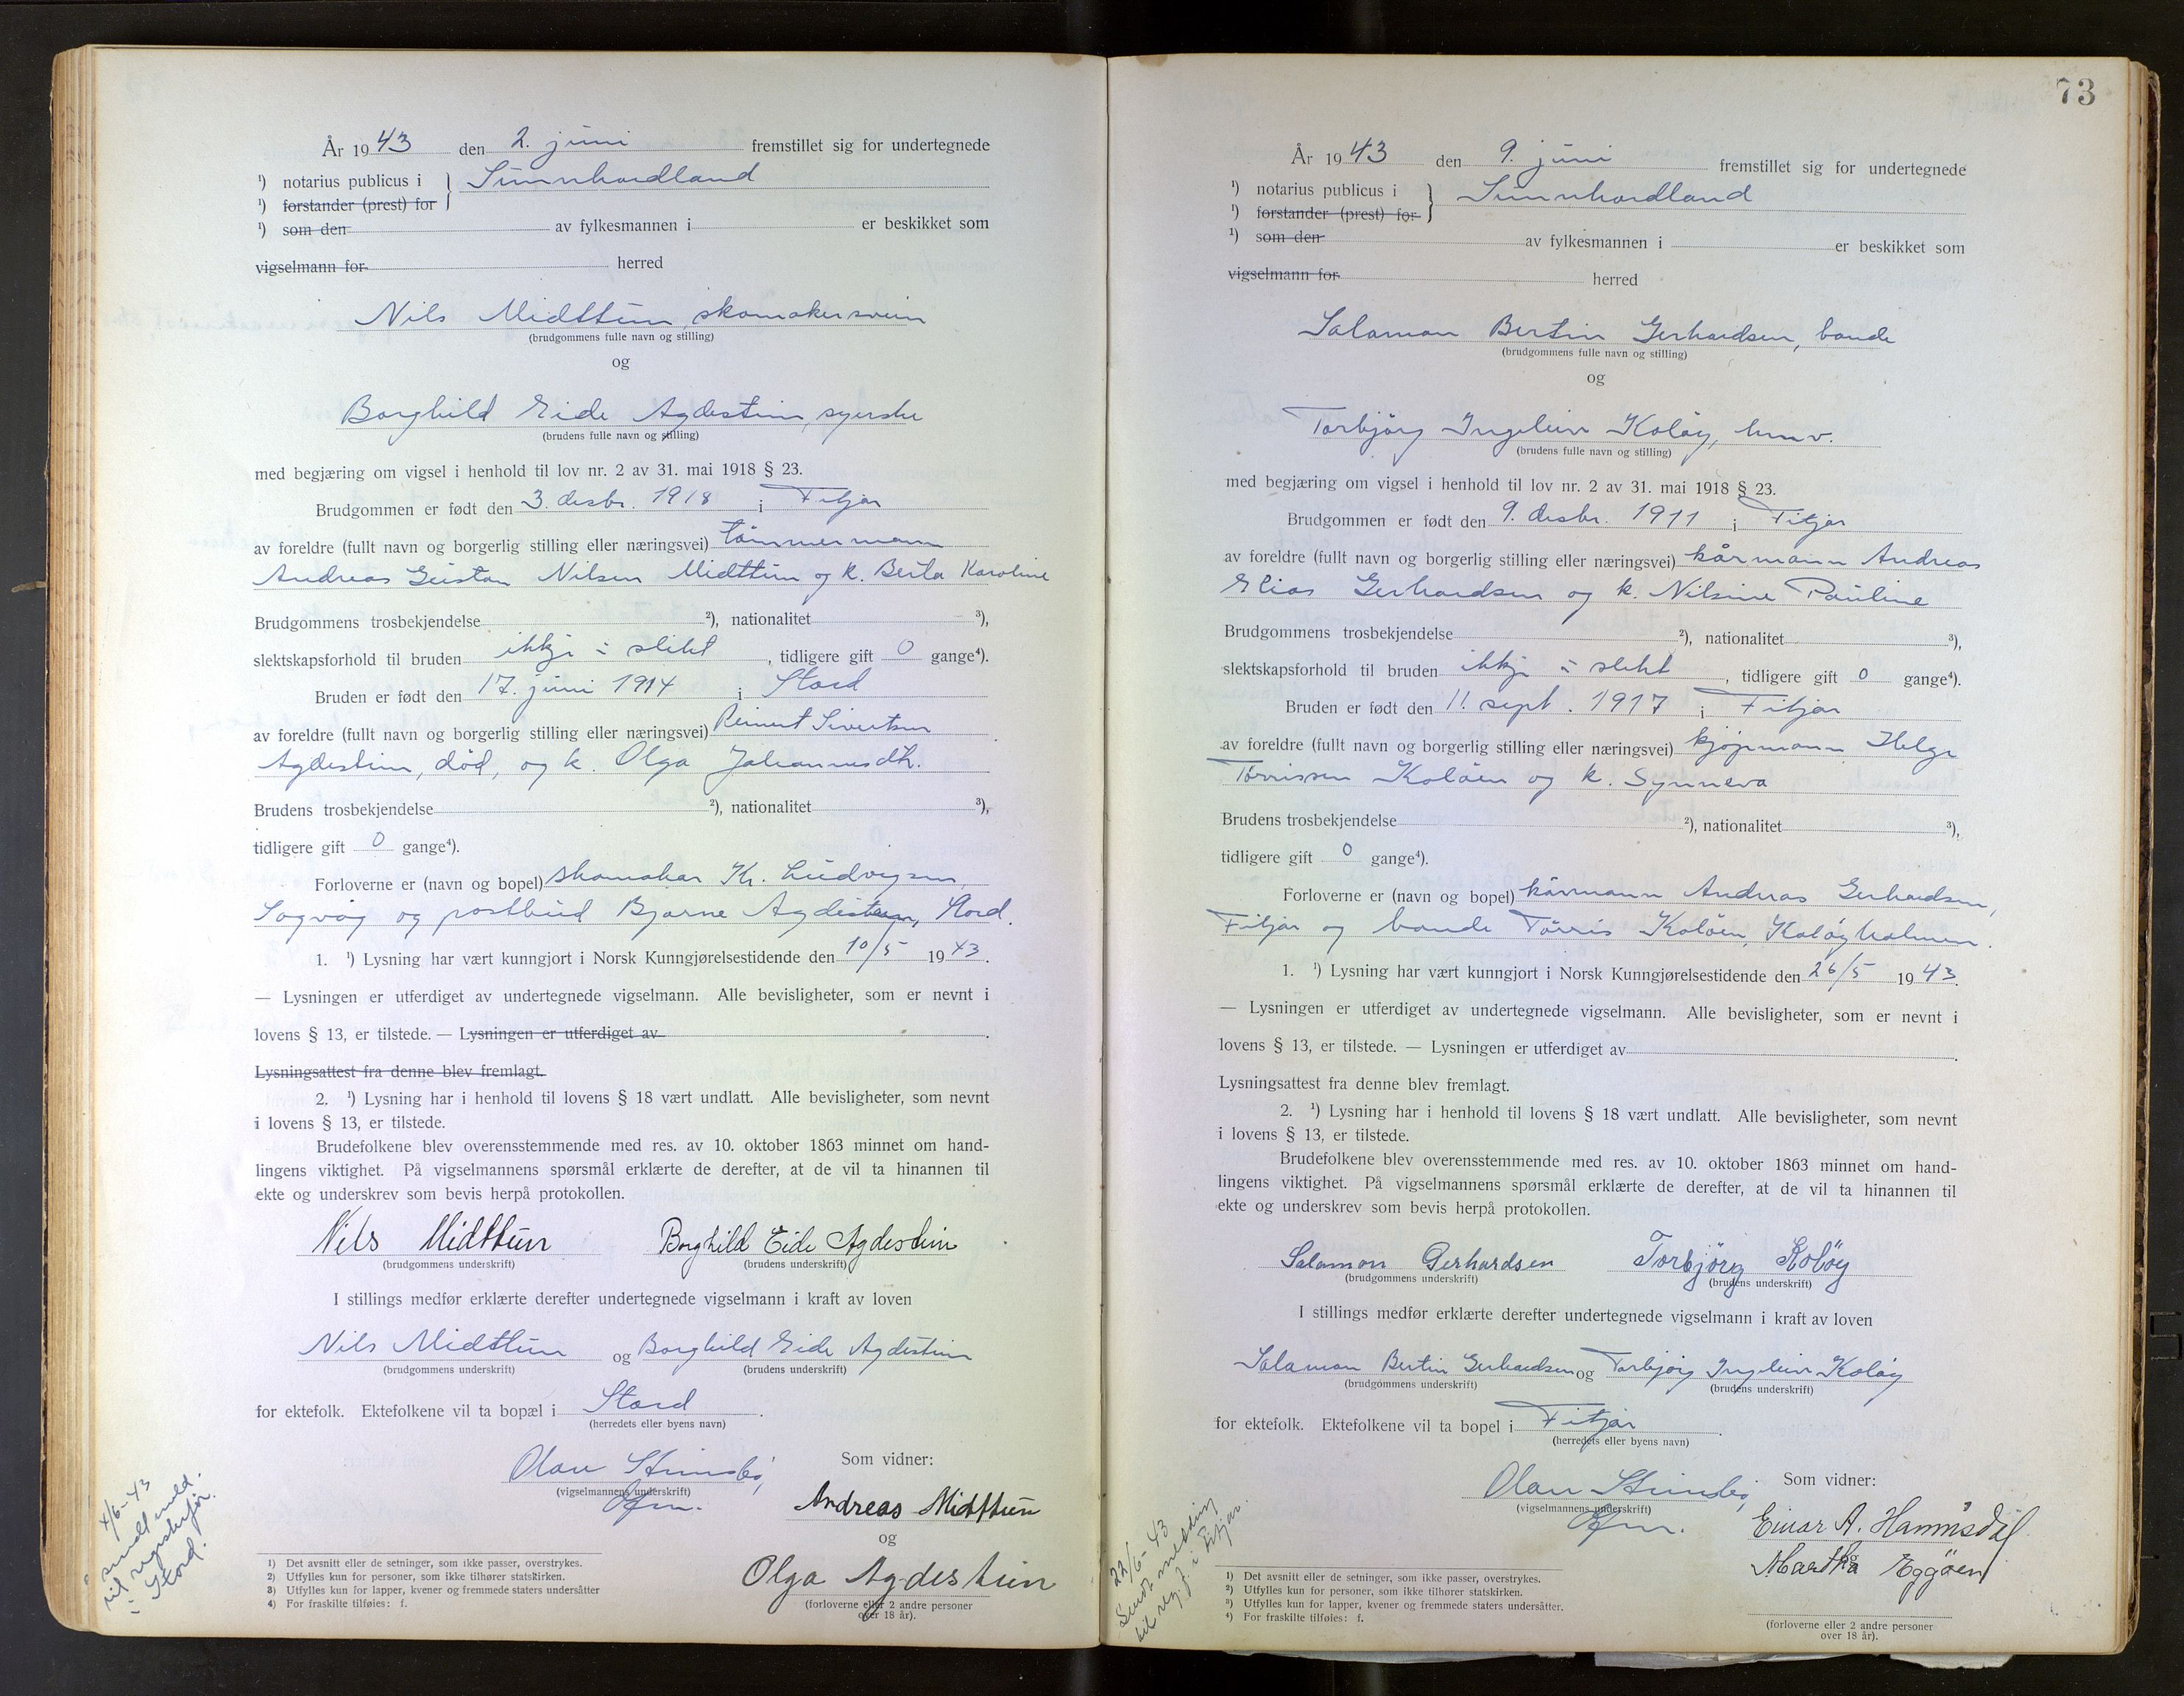 År 1943 den 2. juni fremstillet sig for undertegnede
¹) notarius publicus i } Sunnhordland
¹) forstander (prest) for
¹) som den av fylkesmannen i er beskikket som
vigselmann for herred
Nils Midttun, skomakersvein
(brudgommens fulle navn og stilling)
og
Borghild Eide Agdestein, syerske
(brudens fulle navn og stilling)
med begjæring om vigsel i henhold til lov nr. 2 av 31. mai 1918 § 23.
Brudgommen er født den 3. desbr. 1918 i Fitjar
av foreldre (fullt navn og borgerlig stilling eller næringsvei) tömmermann
Andreas Gustav Nilsen Midttun og k. Berta Karoline
Brudgommens trosbekjendelse ²), nationalitet ³),
slektskapsforhold til bruden ikkje i slekt, tidligere gift 0 gange⁴).
Bruden er født den 17. juni 1914 i Stord
av foreldre (fullt navn og borgerlig stilling eller næringsvei) Reinert Sivertsen
Agdestein, död, og k. Olga Johannesdtr.
Brudens trosbekjendelse ²), nationalitet ³),
tidligere gift 0 gange⁴).
Forloverne er (navn og bopel) skomakar Kr. Ludvigsen,
Sagvåg og postbud Bjarne Agdestein, Stord.
1. ¹) Lysning har vært kunngjort i Norsk Kunngjørelsestidende den 10/5 1943.
— Lysningen er utferdiget av undertegnede vigselmann. Alle bevisligheter, som er nevnt i
lovens § 13, er tilstede. — Lysningen er utferdiget av .
Lysningsattest fra denne blev fremlagt.
2. ¹) Lysning har i henhold til lovens § 18 vært undlatt. Alle bevisligheter, som nevnt
i lovens § 13, er tilstede.
Brudefolkene blev overensstemmende med res. av 10. oktober 1863 minnet om hand-
lingens viktighet. På vigselmannens spørsmål erklærte de derefter, at de vil ta hinannen til
ekte og underskrev som bevis herpå protokollen.
Nils Midttun Borghild Eide Agdestein
(brudgommens underskrift) (brudens underskrift)
I stillings medfør erklærte derefter undertegnede vigselmann i kraft av loven
Nils Midttun og Borghild Eide Agdestein
(brudgommens underskrift) (brudens underskrift)
for ektefolk. Ektefolkene vil ta bopæl i Stord.
(herredets eller byens navn)
Som vidner:
Olav
(vigselmannens underskrift)
Andreas Midttun
og
Olga Agdestein
(forloverne eller 2 andre personer
over 18 år).
4/6-43
sendt meld.
til registerfør.
i Stord.
1) Det avsnitt eller de setninger, som ikke passer, overstrykes.
2) Utfylles kun for personer, som ikke tilhører statskirken.
3) Utfylles kun for lapper, kvener og fremmede staters undersåtter
4) For fraskilte tilføies: f.
73
År 1943 den 9. juni fremstillet sig for undertegnede
¹) notarius publicus i } Sunnhordland
¹) forstander (prest) for
¹) som den av fylkesmannen i er beskikket som
vigselmann for herred
Salamon Bertin Gerhardsen, bonde
(brudgommens fulle navn og stilling)
og
Torbjörg Ingelein Kolöy, hmv.
(brudens fulle navn og stilling)
med begjæring om vigsel i henhold til lov nr. 2 av 31. mai 1918 § 23.
Brudgommen er født den 9. desbr. 1911 i Fitjar
av foreldre (fullt navn og borgerlig stilling eller næringsvei) kårmann Andreas
Elias Gerhardsen og k. Nilsine Pauline
Brudgommens trosbekjendelse ²), nationalitet ³),
slektskapsforhold til bruden ikkje i slekt, tidligere gift 0 gange⁴).
Bruden er født den 11 sept. 1917 i Fitjar
av foreldre (fullt navn og borgerlig stilling eller næringsvei) kjöpmann Helge
Törrissen Kolöen og k. Synneva
Brudens trosbekjendelse ²), nationalitet ³),
tidligere gift 0 gange⁴).
Forloverne er (navn og bopel) kårmann Andreas Gerhardsen,
Fitjar og bonde Törris Kolöen, Kolöyholmen.
1. ¹) Lysning har vært kunngjort i Norsk Kunngjørelsestidende den 26/5 1943.
— Lysningen er utferdiget av undertegnede vigselmann. Alle bevisligheter, som er nevnt i
lovens § 13, er tilstede. — Lysningen er utferdiget av .
Lysningsattest fra denne blev fremlagt.
2. ¹) Lysning har i henhold til lovens § 18 vært undlatt. Alle bevisligheter, som nevnt
i lovens § 13, er tilstede.
Brudefolkene blev overensstemmende med res. av 10. oktober 1863 minnet om hand-
lingens viktighet. På vigselmannens spørsmål erklærte de derefter, at de vil ta hinannen til
ekte og underskrev som bevis herpå protokollen.
Salamon Gerhardsen Torbjörg Kolöy
(brudgommens underskrift) (brudens underskrift)
I stillings medfør erklærte derefter undertegnede vigselmann i kraft av loven
Salamon Bertin Gerhardsen og Torbjörg Ingelein Kolöy
(brudgommens underskrift) (brudens underskrift)
for ektefolk. Ektefolkene vil ta bopel i Fitjar.
(herredets eller byens navn)
Som vidner:
Olav
(vigselmannens underskrift)
Einar A. Hammsdal
og
Martha Eggöen
(forloverne eller 2 andre personer
over 18 år).
22/6-43
Sendt melding
til reg.f. i Fitjar.
1) Det avsnitt eller de setninger, som ikke passer, overstrykes.
2) Utfylles kun for personer, som ikke tilhører statskirken.
3) Utfylles kun for lapper, kvener og fremmede staters undersåtter.
4) For fraskilte tilføies: f.